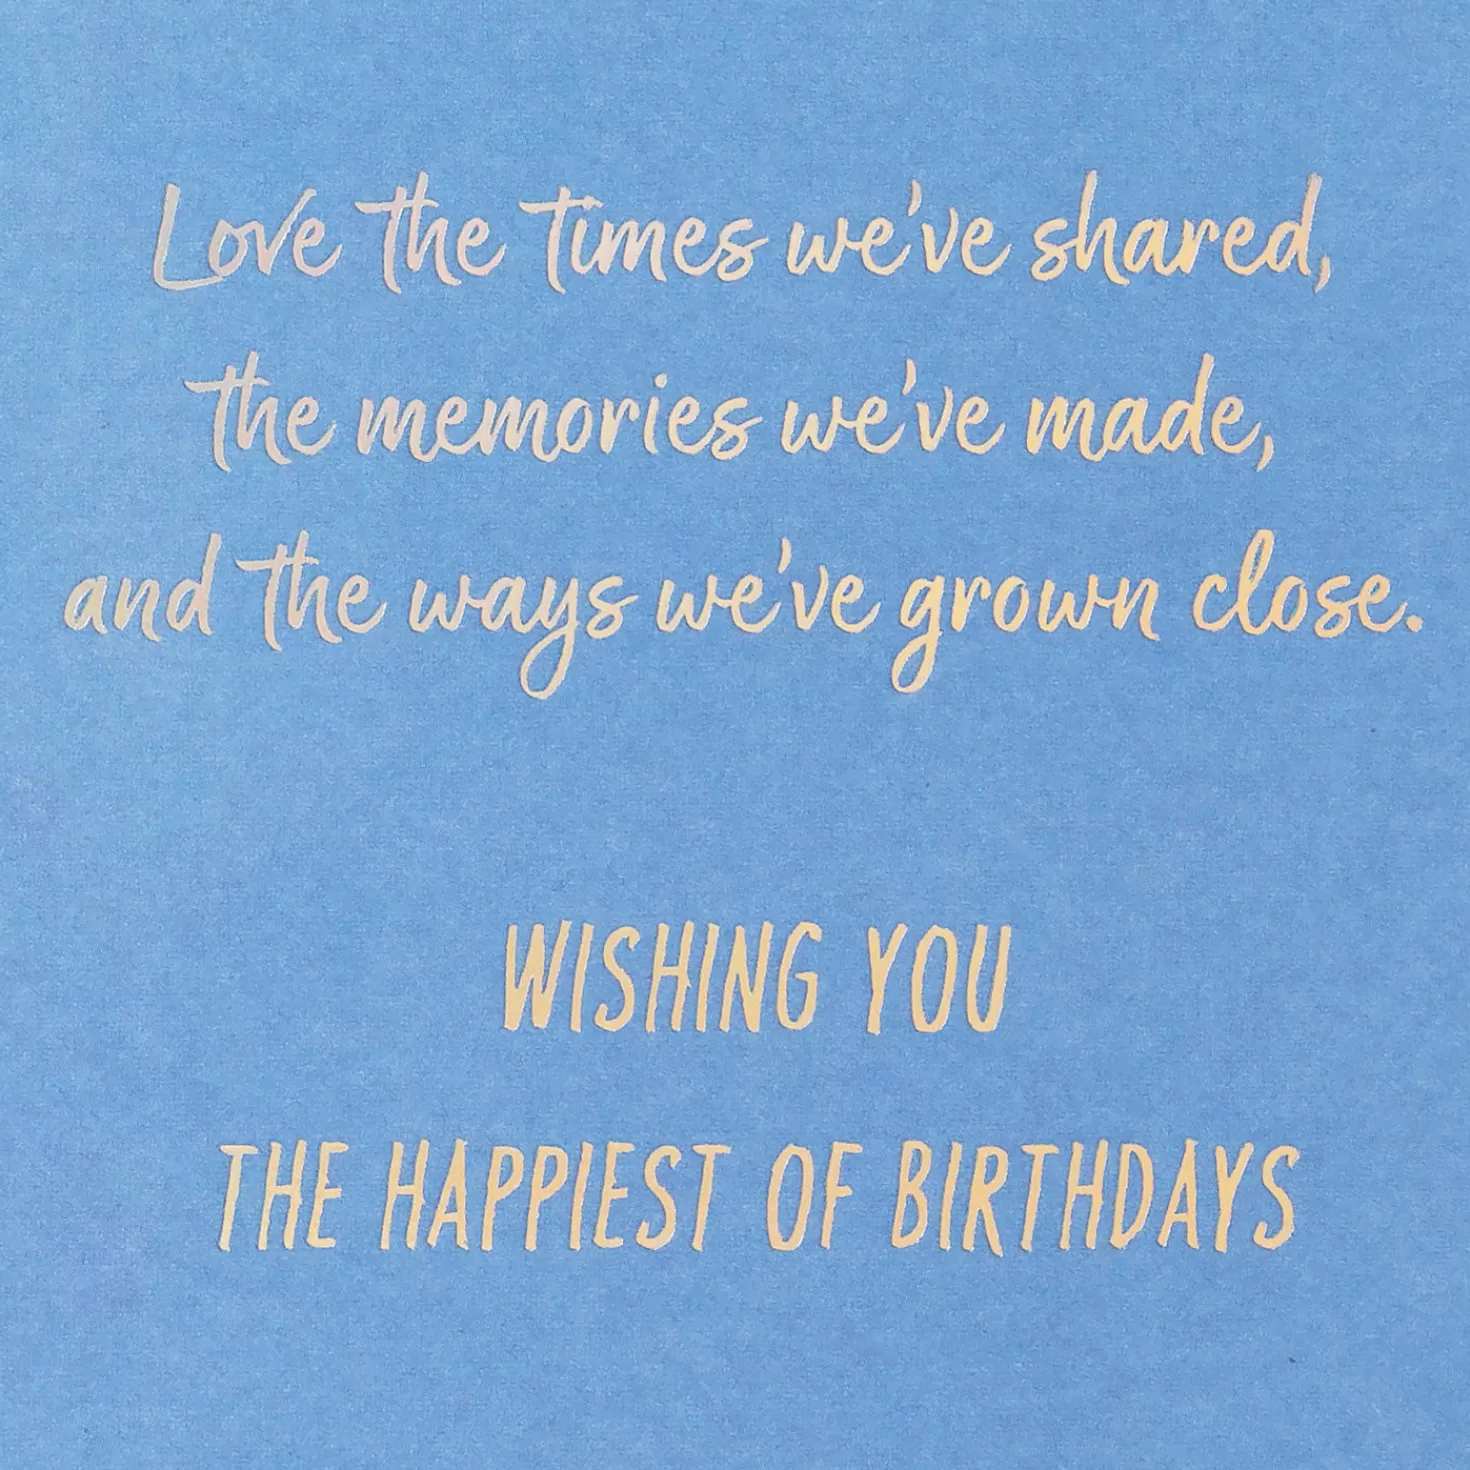 Love the times we've shared,
the memories we've made,
and the ways we've grown close.
WISHING YOU
THE HAPPIEST OF BIRTHDAYS